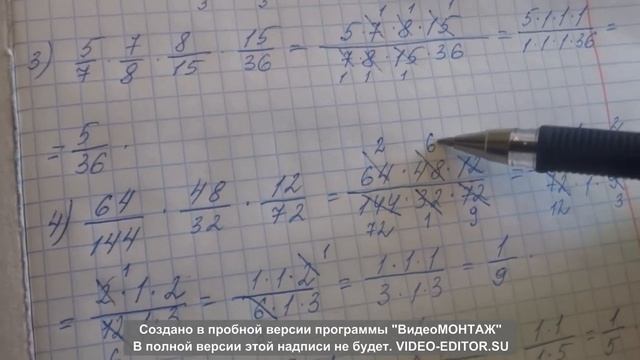 3) 5/7 · 7/8 · 8/15 · 15/36 = 5·7·8·15 / 7·8·15·36 = 5·1·1·1 / 1·1·1·36 =
= 5/36 .
4) 64/144 · 48/32 · 12/72 = 64·48·12 / 144·32·72 =
= 2·1·2 / 12·1·3 = 1·1·2 / 6·1·3 = 1·1·1 / 3·1·3 = 1/9 .
Создано в пробной версии программы "ВидеоМОНТАЖ"
В полной версии этой надписи не будет. VIDEO-EDITOR.SU